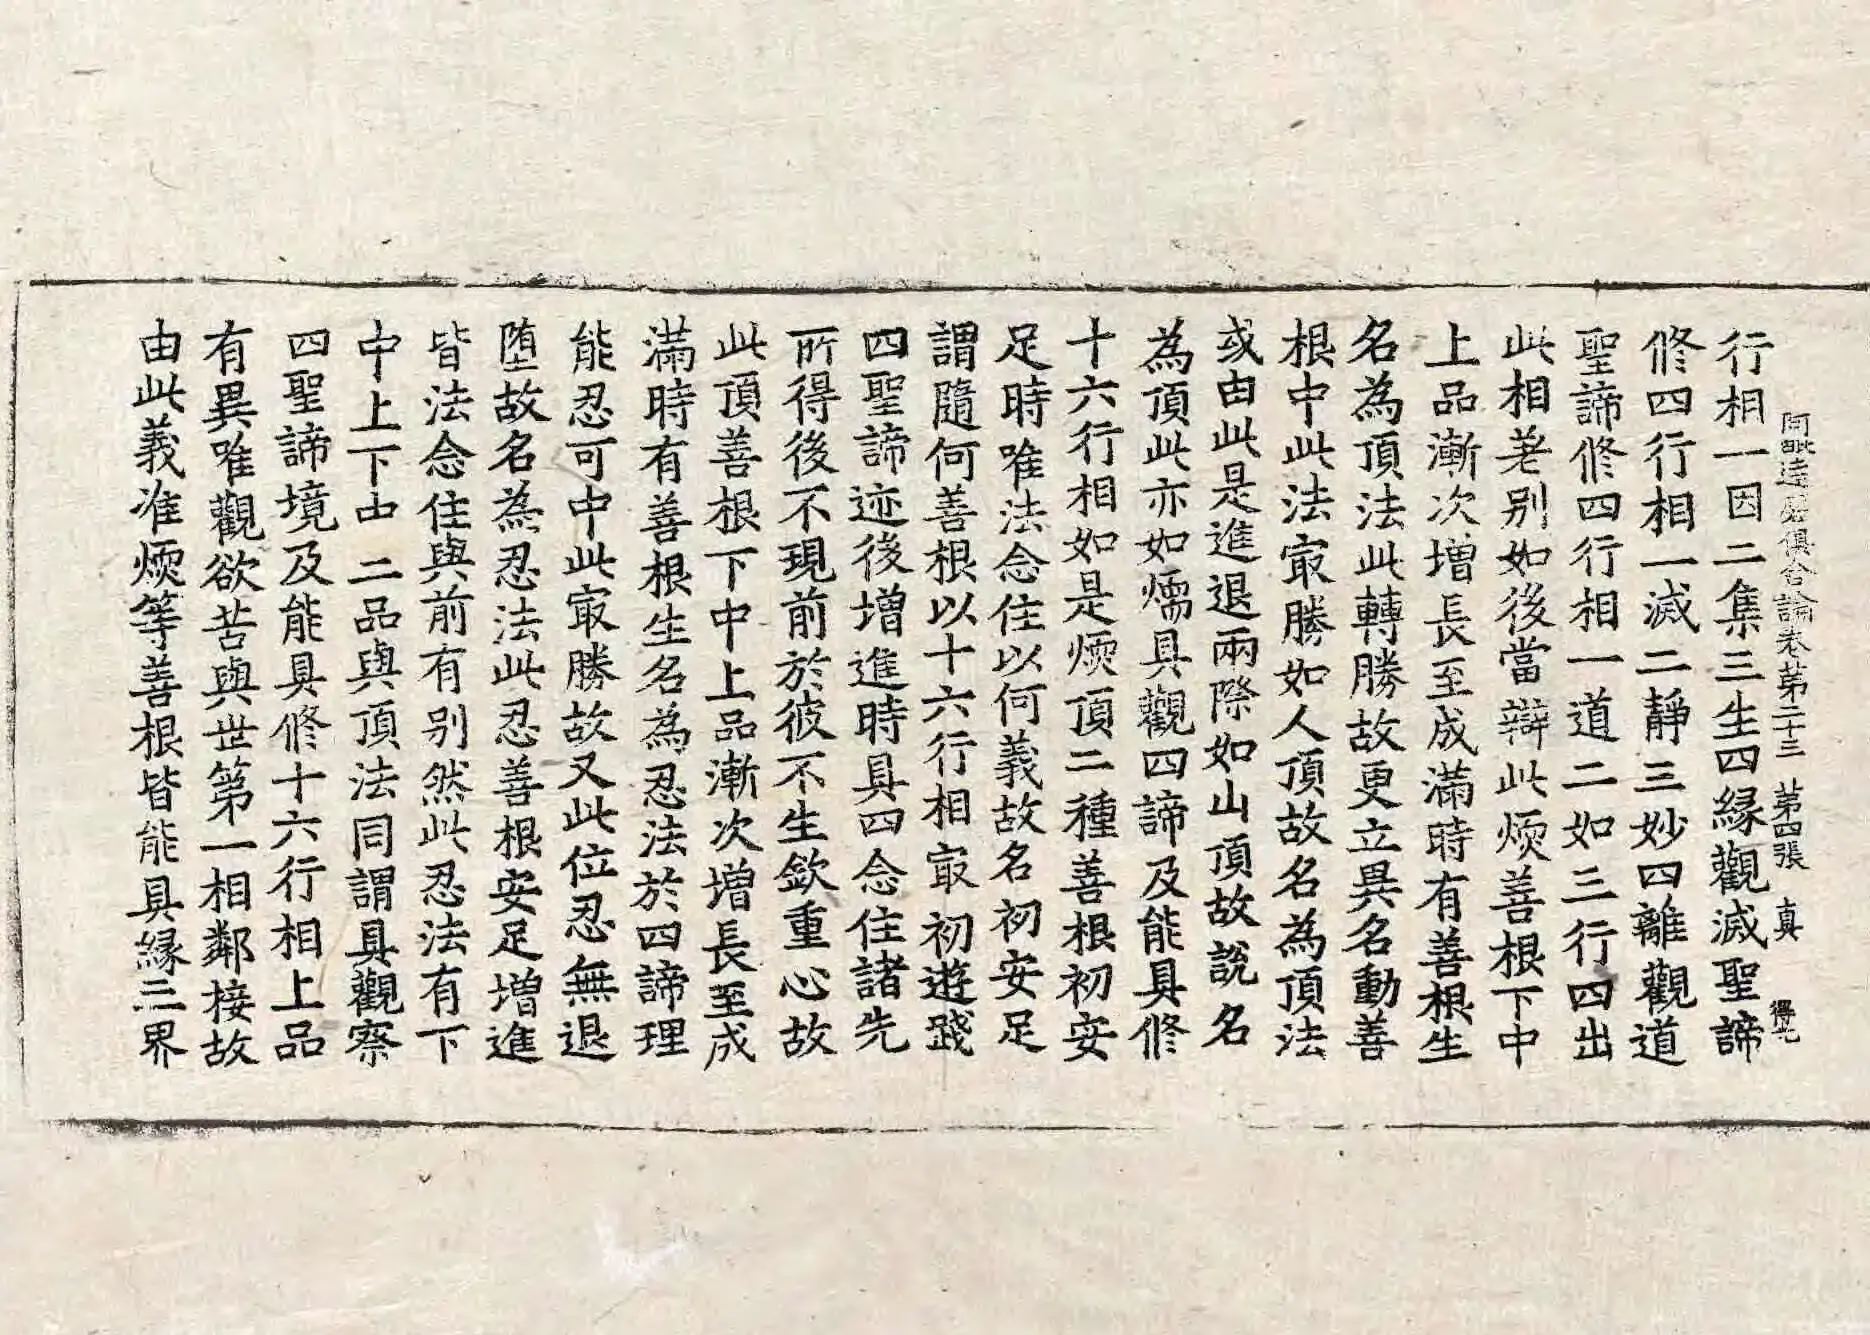 阿毗達磨俱舍論卷第二十三 第四張 真 得九
行相一因二集三生四緣觀滅聖諦
修四行相一滅二靜三妙四離觀道
聖諦修四行相一道二如三行四出
此相差別如後當辯此煗善根下中
上品漸次增長至成滿時有善根生
名為頂法此轉勝故更立異名動善
根中此法㝡勝如人頂故名為頂法
或由此是進退兩際如山頂故說名
為頂此亦如煗具觀四諦及能具修
十六行相如是煗頂二種善根初安
足時唯法念住以何義故名初安足
謂隨何善根以十六行相㝡初遊踐
四聖諦迹後增進時具四念住諸先
所得後不現前於彼不生欽重心故
此頂善根下中上品漸次增長至成
滿時有善根生名為忍法於四諦理
能忍可中此㝡勝故又此位忍無退
墮故名為忍法此忍善根安足增進
皆法念住與前有別然此忍法有下
中上下中二品與頂法同謂具觀察
四聖諦境及能具修十六行相上品
有異唯觀欲苦與世第一相鄰接故
由此義准煗等善根皆能具緣三界